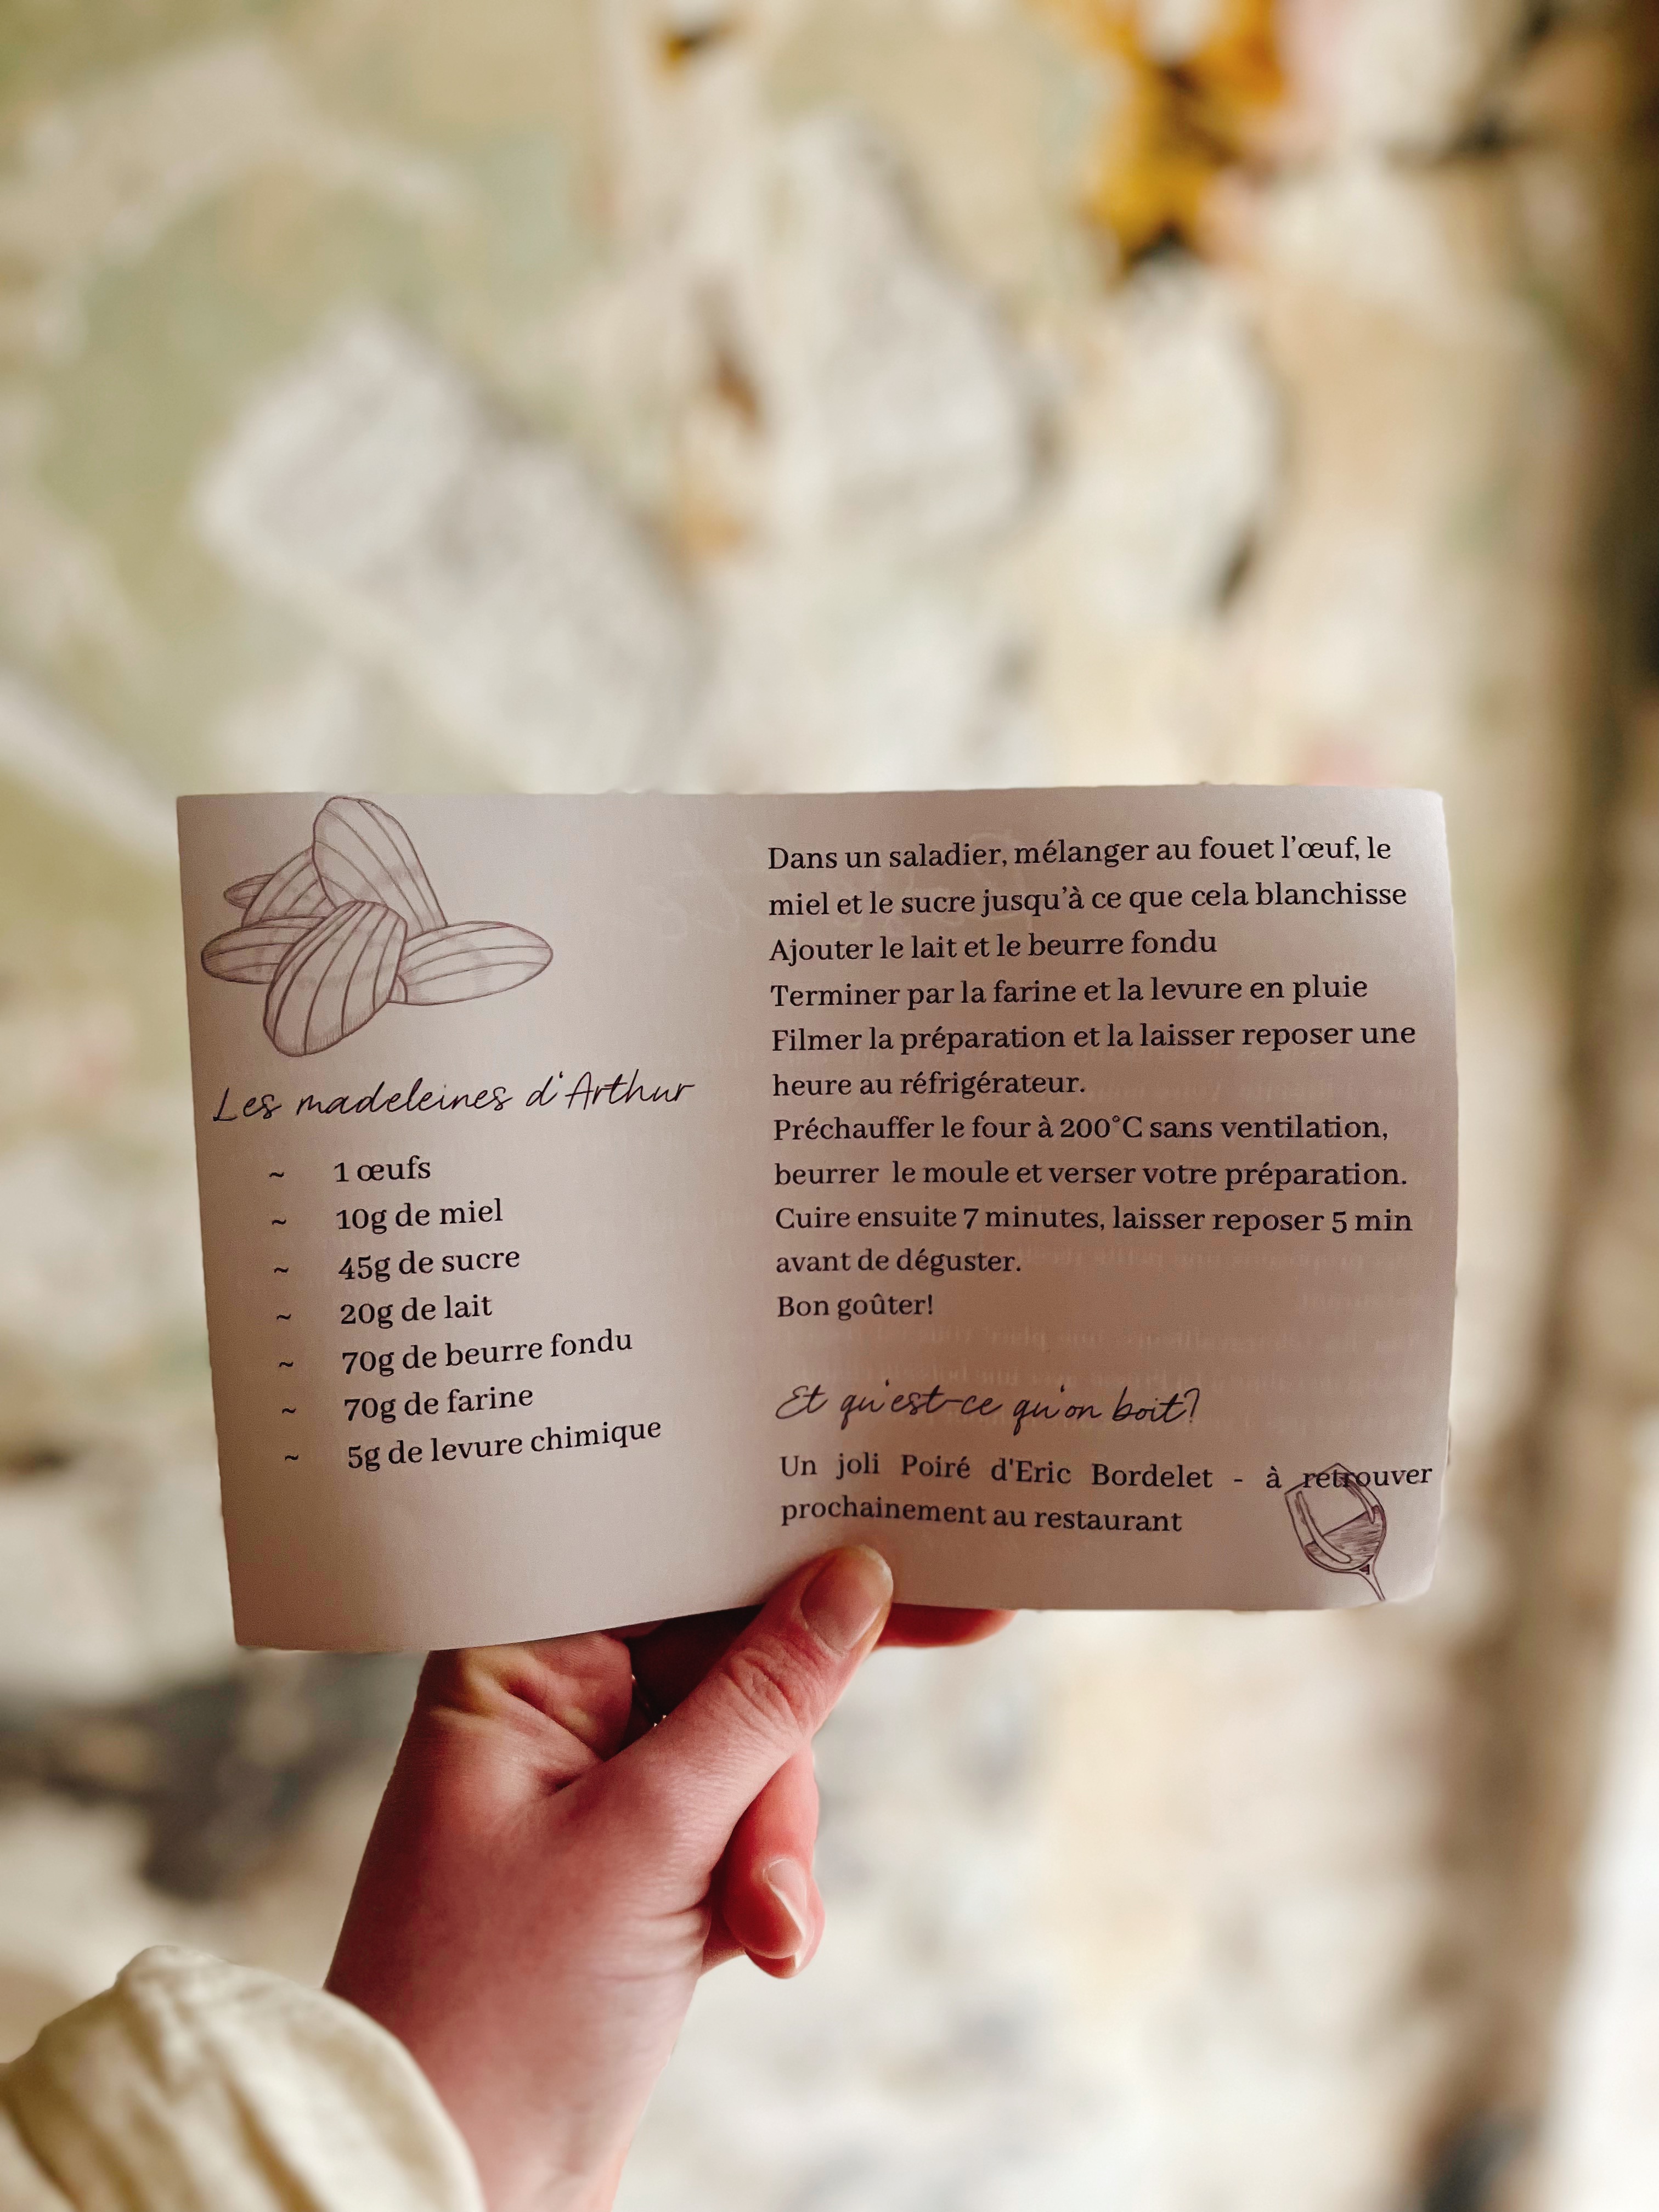 Les madeleines d'Arthur
~ 1 œufs
~ 10g de miel
~ 45g de sucre
~ 20g de lait
~ 70g de beurre fondu
~ 70g de farine
~ 5g de levure chimique
Dans un saladier, mélanger au fouet l'œuf, le
miel et le sucre jusqu'à ce que cela blanchisse
Ajouter le lait et le beurre fondu
Terminer par la farine et la levure en pluie
Filmer la préparation et la laisser reposer une
heure au réfrigérateur.
Préchauffer le four à 200°C sans ventilation,
beurrer le moule et verser votre préparation.
Cuire ensuite 7 minutes, laisser reposer 5 min
avant de déguster.
Bon goûter!
Et qu'est-ce qu'on boit?
Un joli Poiré d'Eric Bordelet - à retrouver
prochainement au restaurant